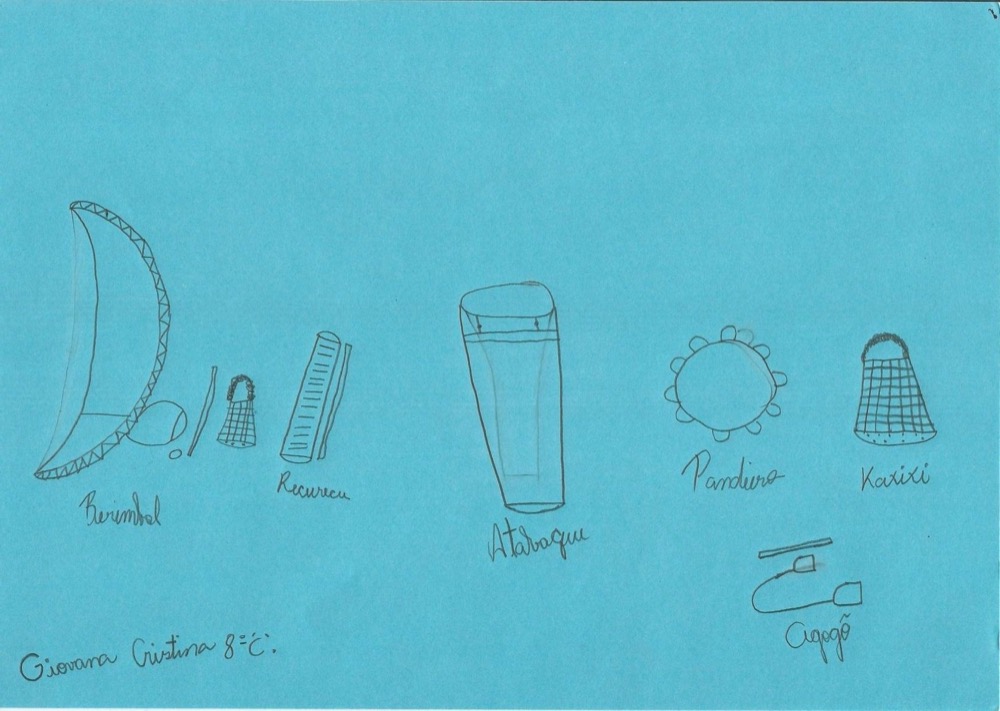 Berimbal
Recurecu
Atabaque
Pandiero
Kaxixi
Agogõ
Giovana Cristina 8ª C.